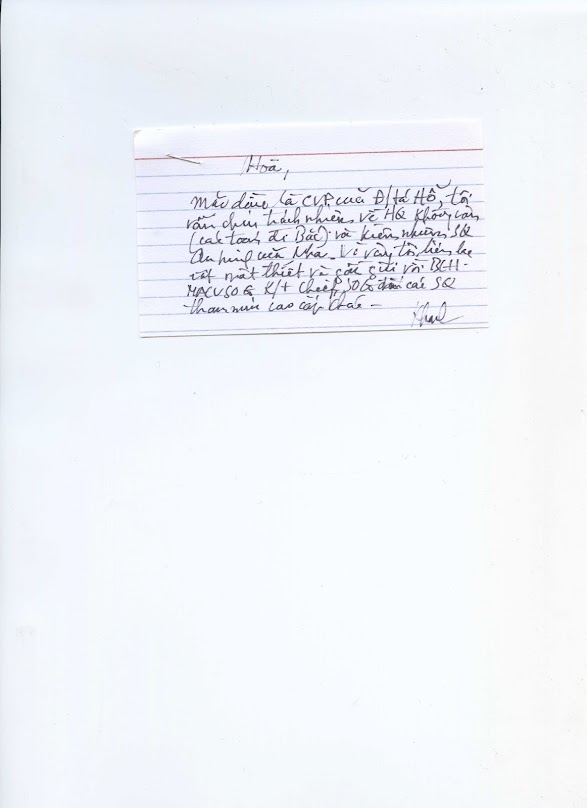 Hoà,
Mặc dầu là CVP của Đ/tá Hồ, tôi
vẫn chịu trách nhiệm về HQ không vận
(các toán đi Bắc) và kiêm nhiệm SQ
An ninh của Nha. Vì vậy tôi liên hệ
rất mật thiết và gần gũi với BCH-
MACVSOG K/t Chief SOG đến các SQ
tham mưu cao cấp khác -